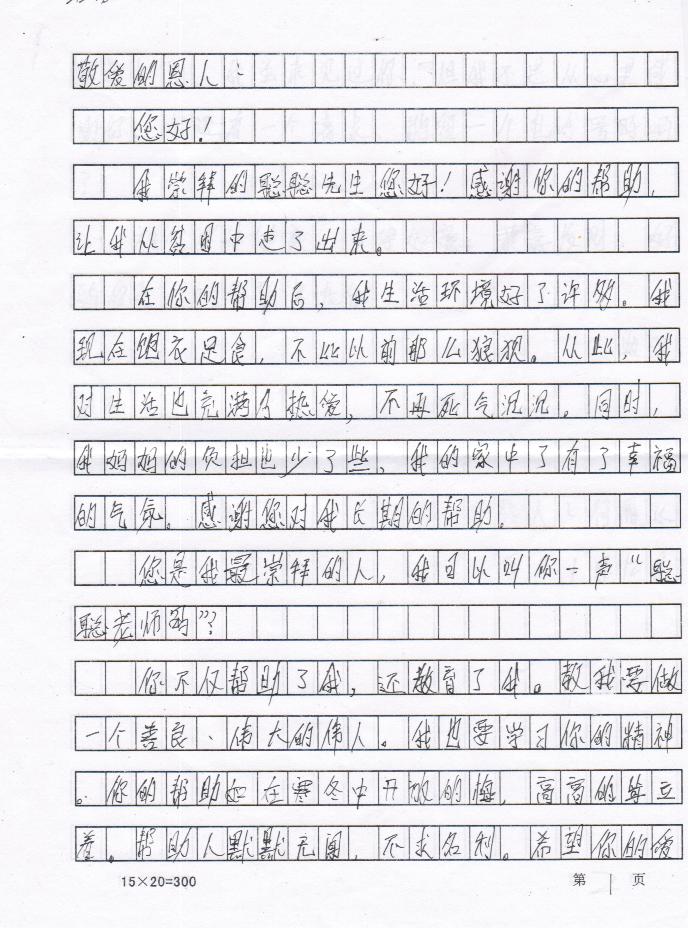 敬爱的恩人：
您好！
我崇拜的聪聪先生您好！感谢你的帮助，
让我从贫困中走了出来。
在你的帮助后，我生活环境好了许多。我
现在饱衣足食，不比以前那么狼狈。从此，我
对生活也充满了热爱，不再死气沉沉。同时，
我妈妈的负担也少了些，我的家中了有了幸福
的气氛。感谢您对我长期的帮助。
您是我最崇拜的人，我可以叫你一声“聪
聪老师”吗？
你不仅帮助了我，还教育了我。教我要做
一个善良、伟大的伟人。我也要学习你的精神
。你的帮助如在寒冬中开放的梅，高高的耸立
着。帮助人默默无闻，不求名利。希望你的爱
15×20=300 第 1 页